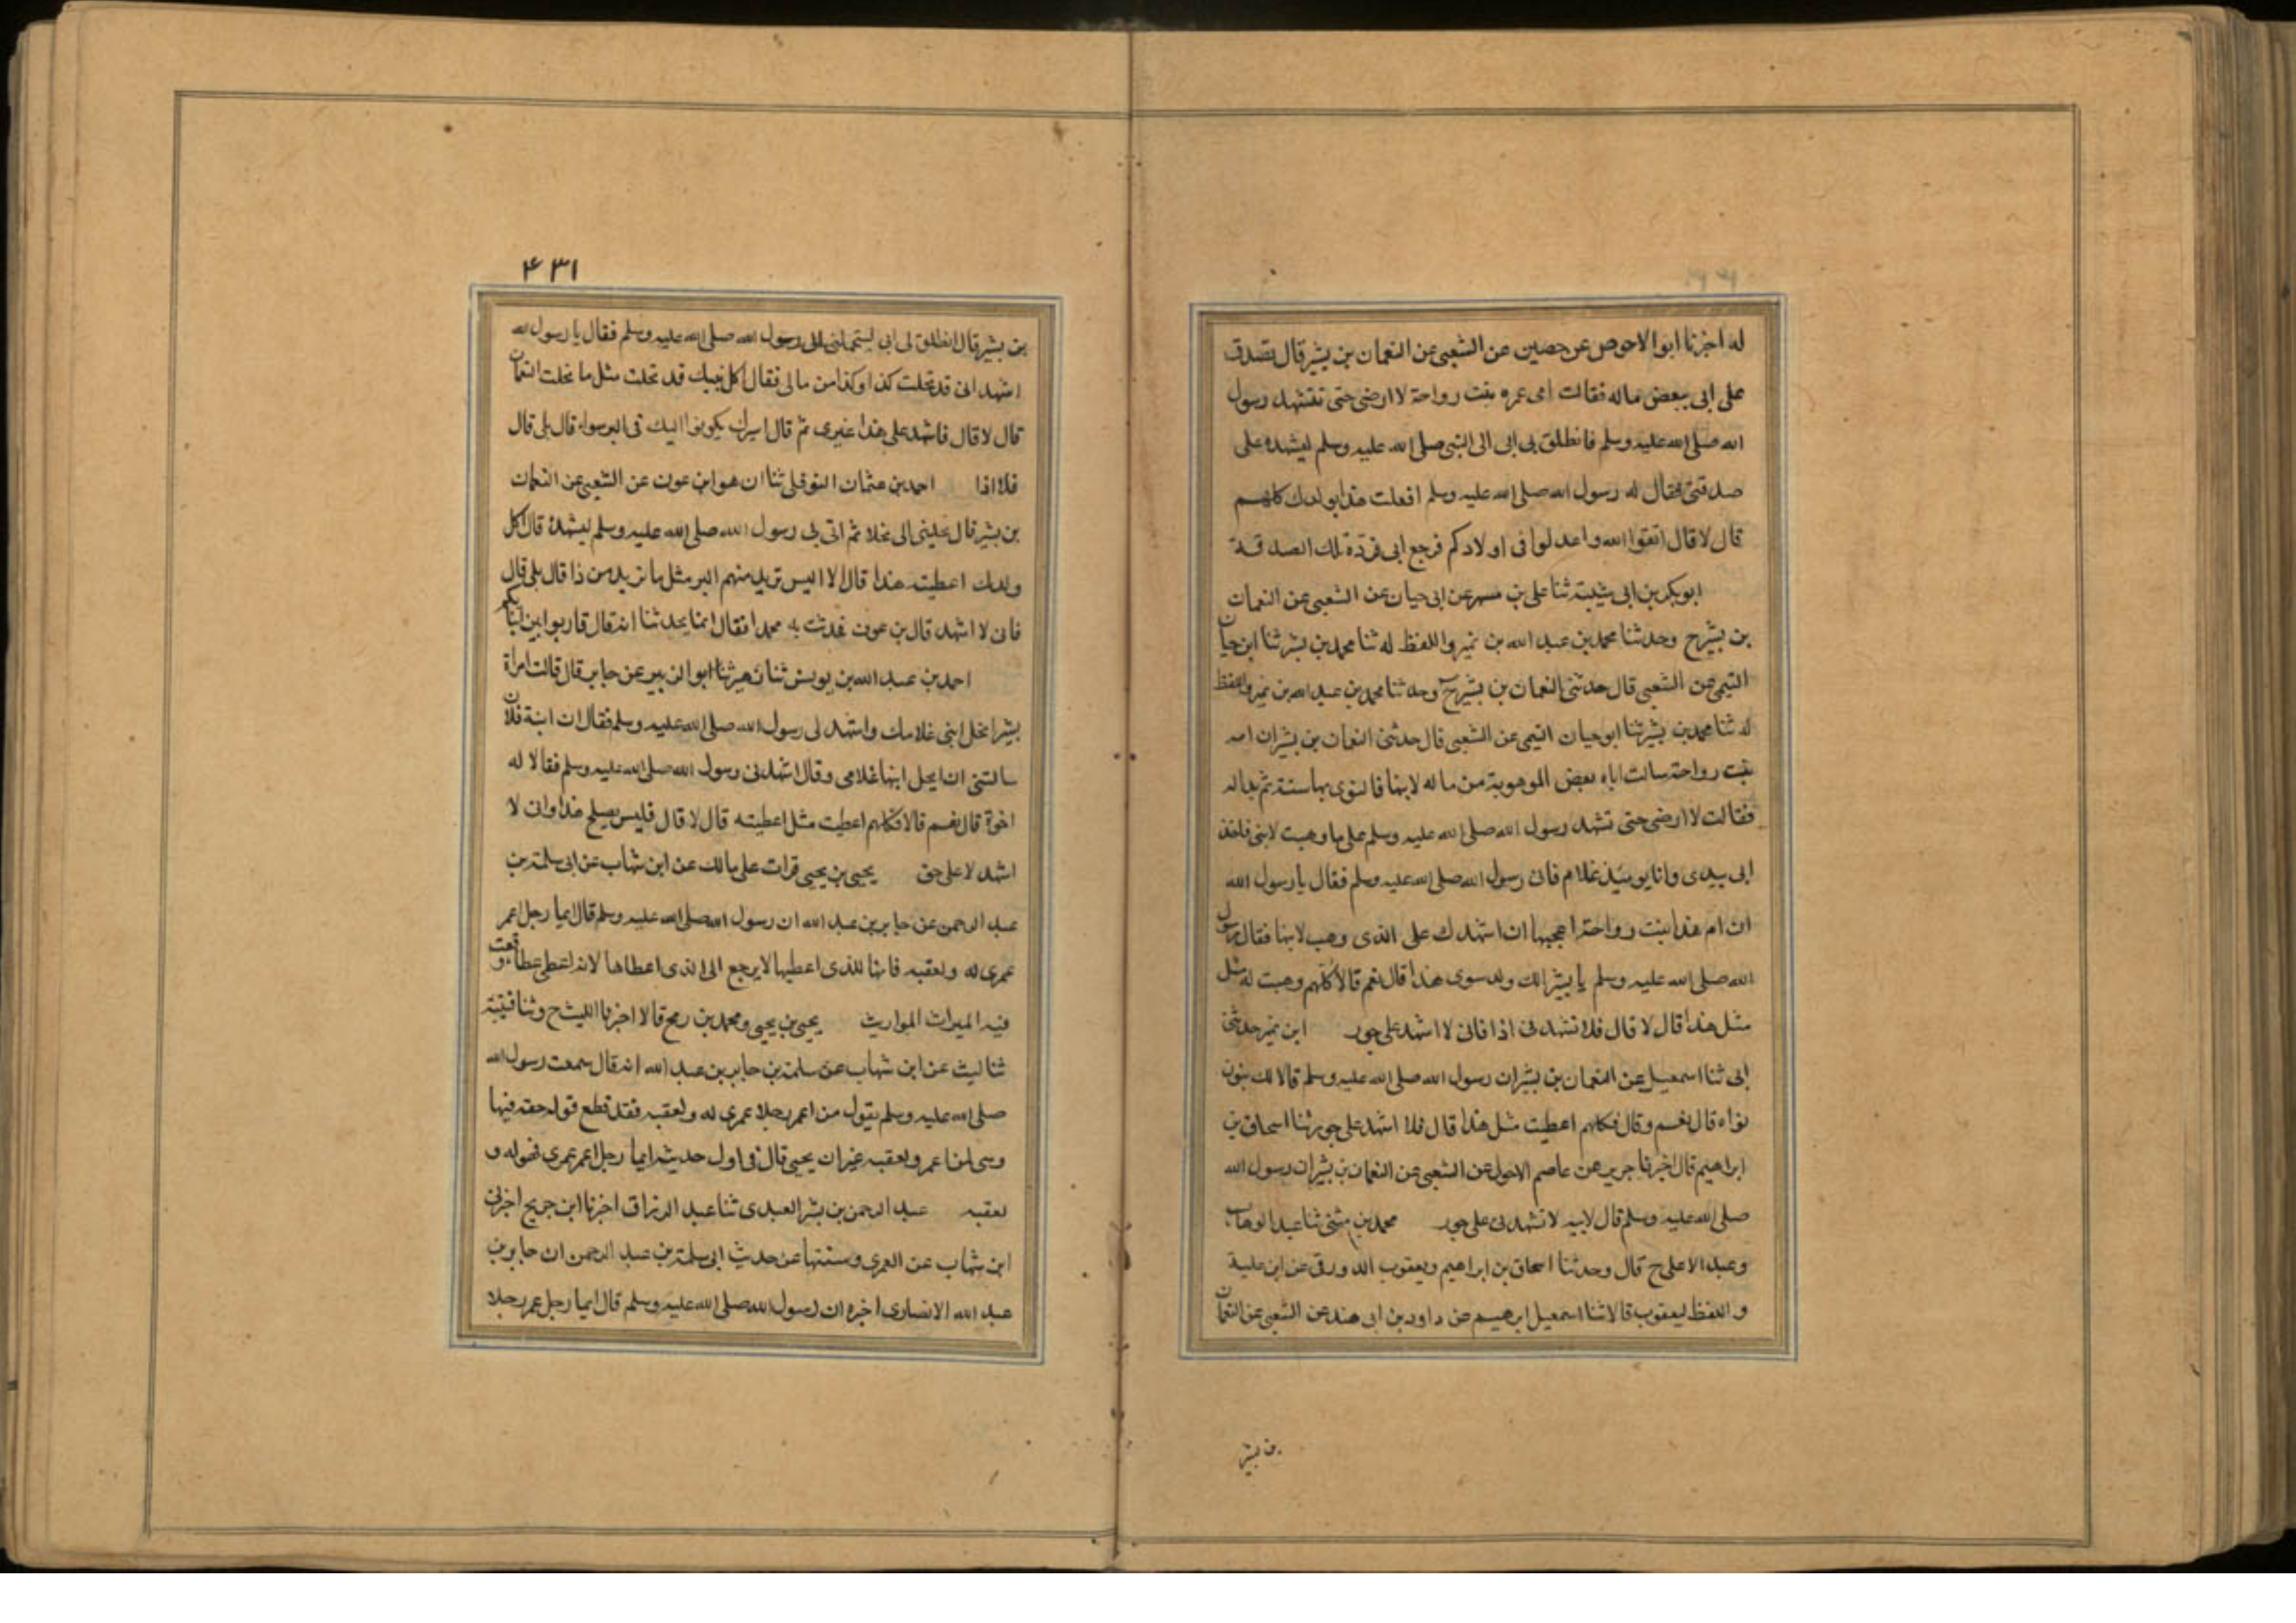 له اخبرنا ابو الاحوص عن حصين عن الشعبى عن النعمان بن بشير قال تصدق
على ابى ببعض ماله فقالت امى عمره بنت رواحة لا ارضى حتى تشهد رسول
الله صلى الله عليه وسلم فانطلق بى ابى الى النبى صلى الله عليه وسلم ليشهده على
صدقتى فقال له رسول الله صلى الله عليه وسلم افعلت هذا بولدك كلهم
قال لا قال اتقوا الله واعدلوا فى اولادكم فرجع ابى فرد تلك الصدقة
ابو بكر بن ابى شيبة ثنا على بن مسهر عن ابى حيان عن الشعبى عن النعمان
بن بشير ح وحدثنا محمد بن عبد الله بن نمير واللفظ له ثنا محمد بن بشر ثنا ابن حيان
التيمى عن الشعبى قال حدثنى النعمان بن بشير ح وحدثنا محمد بن عبد الله بن نمير واللفظ
له ثنا محمد بن بشير ثنا ابو حيان التيمى عن الشعبى قال حدثنى النعمان بن بشير ان امه
بنت رواحة سالت اباه بعض الموهوبة من ماله لابنها فالتوى بها سنة ثم بدا له
فقالت لا ارضى حتى تشهد رسول الله صلى الله عليه وسلم على ما وهبت لابنى فاخذ
ابى بيدى وانا يومئذ غلام فاتى رسول الله صلى الله عليه وسلم فقال يا رسول الله
ان ام هذا بنت رواحة اعجبها ان اشهدك على الذى وهب لابنها فقال رسول
الله صلى الله عليه وسلم يا بشير الك ولد سوى هذا قال نعم قال اكلهم وهبت له مثل
مثل هذا قال لا قال فلا تشهدنى اذا فانى لا اشهد على جور ابن نمير حدثنى
ابى ثنا اسمعيل عن النعمان بن بشير ان رسول الله صلى الله عليه وسلم قال الك بنون
قال نعم وقال فكلهم اعطيت مثل هذا قال فلا اشهد على جور ثنا اسحاق بن
ابراهيم قال اخبرنا جرير عن عاصم الاحول عن الشعبى عن النعمان بن بشير ان رسول الله
صلى الله عليه وسلم قال لابيه لا تشهدنى على جور محمد بن مثنى ثنا عبد الوهاب
وعبد الاعلى ح قال وحدثنا اسحاق بن ابراهيم ويعقوب الدورقى عن ابن علية
واللفظ ليعقوب قالا ثنا اسمعيل ابرهيم عن داود بن ابى هند عن الشعبى عن النعمان
بن بشير
۴۳۱
بن بشير قال انطلق بى ابى الى رسول الله صلى الله عليه وسلم فقال يا رسول الله
اشهد انى قد نحلت كذا وكذا من مالى فقال اكل بنيك قد نحلت مثل ما نحلت النعمان
قال لا قال فاشهد على هذا غيرى ثم قال ايسرك يكونوا اليك فى البر سواء قال بلى قال
فلا اذا احمد بن عثمان النوفلى ثنا ابن عون عن الشعبى عن النعمان
بن بشير قال نحلنى ابى نحلا ثم اتى بى رسول الله صلى الله عليه وسلم ليشهده قال اكل
ولدك اعطيته هذا قال لا اليس تريد منهم البر مثل ما تريد من ذا قال بلى قال
فانى لا اشهد قال بن عون فحدثت به محمدا فقال انما يحدثنا انه قال قاربوا بين ابنائكم
احمد بن عبد الله بن يونس ثنا زهير ثنا ابو الزبير عن جابر قال قالت امراة
بشير انحل ابنى غلامك واشهد لى رسول الله صلى الله عليه وسلم فقال ان ابنة فلان
سالتنى ان انحل ابنها غلامى وقال اشهد لى رسول الله صلى الله عليه وسلم فقال اله
اخوة قال نعم قال افكلهم اعطيت مثل اعطيته قال لا قال فليس يصلح هذا وانى لا
اشهد لا على حق يحيى بن يحيى قرات على مالك عن ابن شهاب عن ابى سلمة بن
عبد الرحمن عن جابر بن عبد الله ان رسول الله صلى الله عليه وسلم قال ايما رجل اعمر
عمرى له ولعقبه فانها للذى اعطيها لا يرجع الى الذى اعطاها لانه اعطى عطاء وقعت
فيه الميراث المواريث يحيى بن يحيى ومحمد بن رمح قالا اخبرنا الليث ح وثنا قتيبة
ثنا ليث عن ابن شهاب عن سلمة بن جابر بن عبد الله انه قال سمعت رسول الله
صلى الله عليه وسلم يقول من اعمر رجلا عمرى له ولعقبه فقد قطع قوله حقه فيها
وهى لمن اعمر ولعقبه غير ان يحيى قال فى اول حديثه ايما رجل اعمر عمرى فهو له و
لعقبه عبد الرحمن بن بشر العبدى ثنا عبد الرزاق اخبرنا ابن جريج اخبرنى
ابن شهاب عن العمرى وسنتها عن حديث ابى سلمة بن عبد الرحمن ان جابر بن
عبد الله الانصارى اخبره ان رسول الله صلى الله عليه وسلم قال ايما رجل عمر رجلا